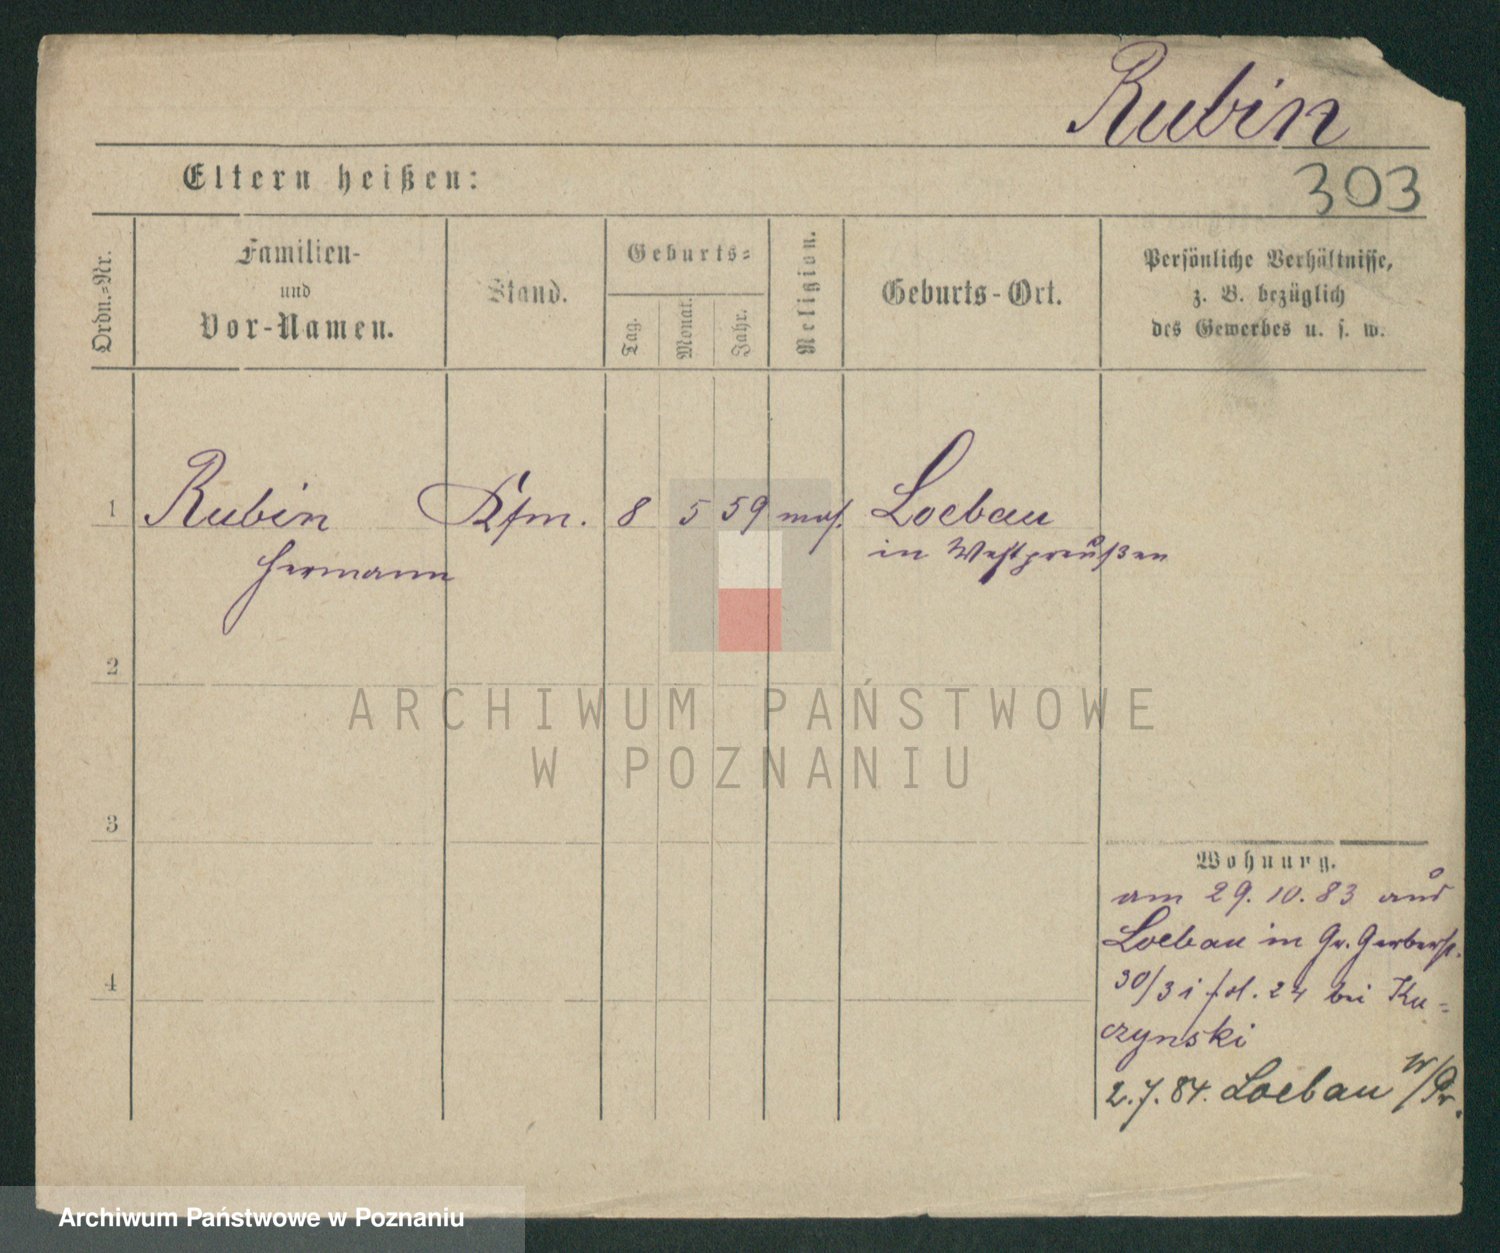 Rubin
303
Eltern heißen:
Ordn.-Nr.
Familien-
und
Vor-Namen.
Stand.
Geburts-
Tag.
Monat.
Jahr.
Religion.
Geburts-Ort.
Persönliche Verhältnisse,
z. B. bezüglich
des Gewerbes u. s. w.
1 Rubin Kfm. 8 5 59 mos. Loebau
Hermann in Westpreußen
2
3
4
Wohnung.
am 29. 10. 83 aus
Loebau in Gr. Gerberst.
30/31 fol. 24 bei Ku-
czynski
2.7.84. Loebau W/Pr.
ARCHIWUM PAŃSTWOWE
W POZNANIU
Archiwum Państwowe w Poznaniu